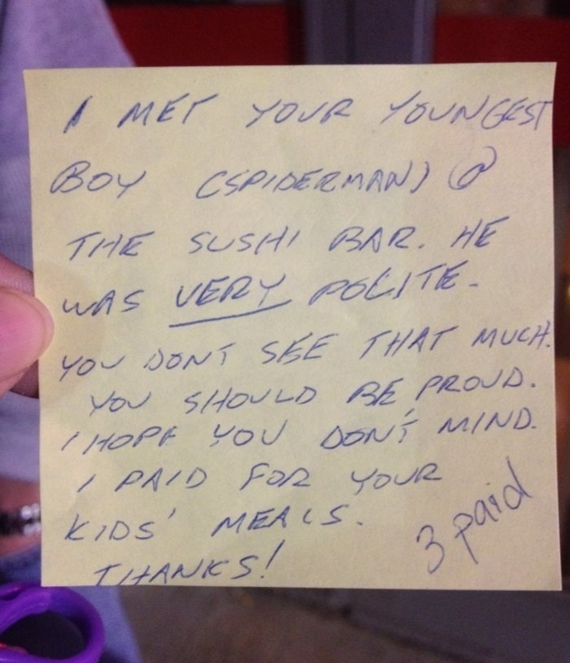 I MET YOUR YOUNGEST
BOY (SPIDERMAN) @
THE SUSHI BAR. HE
WAS VERY POLITE.
YOU DON'T SEE THAT MUCH.
YOU SHOULD BE PROUD.
I HOPE YOU DON'T MIND.
I PAID FOR YOUR
KIDS' MEALS.
THANKS!
3 paid